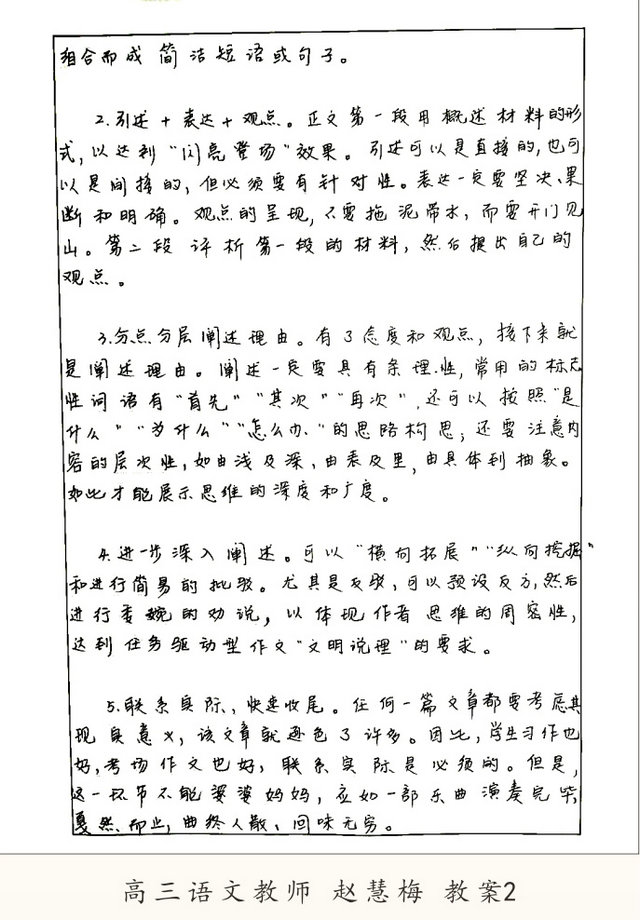 组合而成简洁短语或句子。
2.引述+表达+观点。正文第一段用概述材料的形
式,以达到“闪亮登场”效果。引述可以是直接的,也可
以是间接的,但必须要有针对性。表达一定要坚决、果
断和明确。观点的呈现,不要拖泥带水,而要开门见
山。第二段评析第一段的材料,然后提出自己的
观点。
3.分点分层阐述理由。有了态度和观点,接下来就
是阐述理由。阐述一定要具有条理性,常用的标志
性词语有“首先”“其次”“再次”,还可以按照“是
什么”“为什么”“怎么办”的思路构思;还要注意内
容的层次性,如由浅及深、由表及里,由具体到抽象。
如此才能展示思维的深度和广度。
4.进一步深入阐述。可以“横向拓展”“纵向挖掘”
和进行简易的批驳。尤其是反驳,可以预设反方,然后
进行委婉的劝说,以体现作者思维的周密性,
达到任务驱动型作文“文明说理”的要求。
5.联系实际,快速收尾。任何一篇文章都要考虑其
现实意义,该文章就逊色了许多。因此,学生习作也
好,考场作文也好,联系实际是必须的。但是,
这一环节不能婆婆妈妈,应如一部乐曲演奏完毕,
戛然而止,曲终人散,回味无穷。
高三语文教师 赵慧梅 教案2